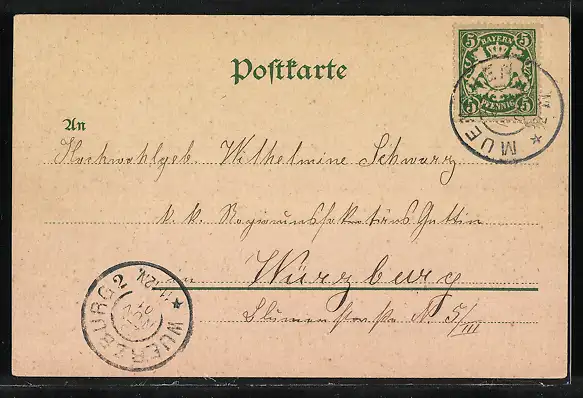 Postkarte
5 BAYERN 5
5 PFENNIG 5
MUE
An
Hochwohlgeb. Wilhelmine Schwarz
k. k. Regierungssekretärs Gattin
in Würzburg
Blumenstrasse N 5/III
WUERZBURG 2
11-12V.
NOV
01